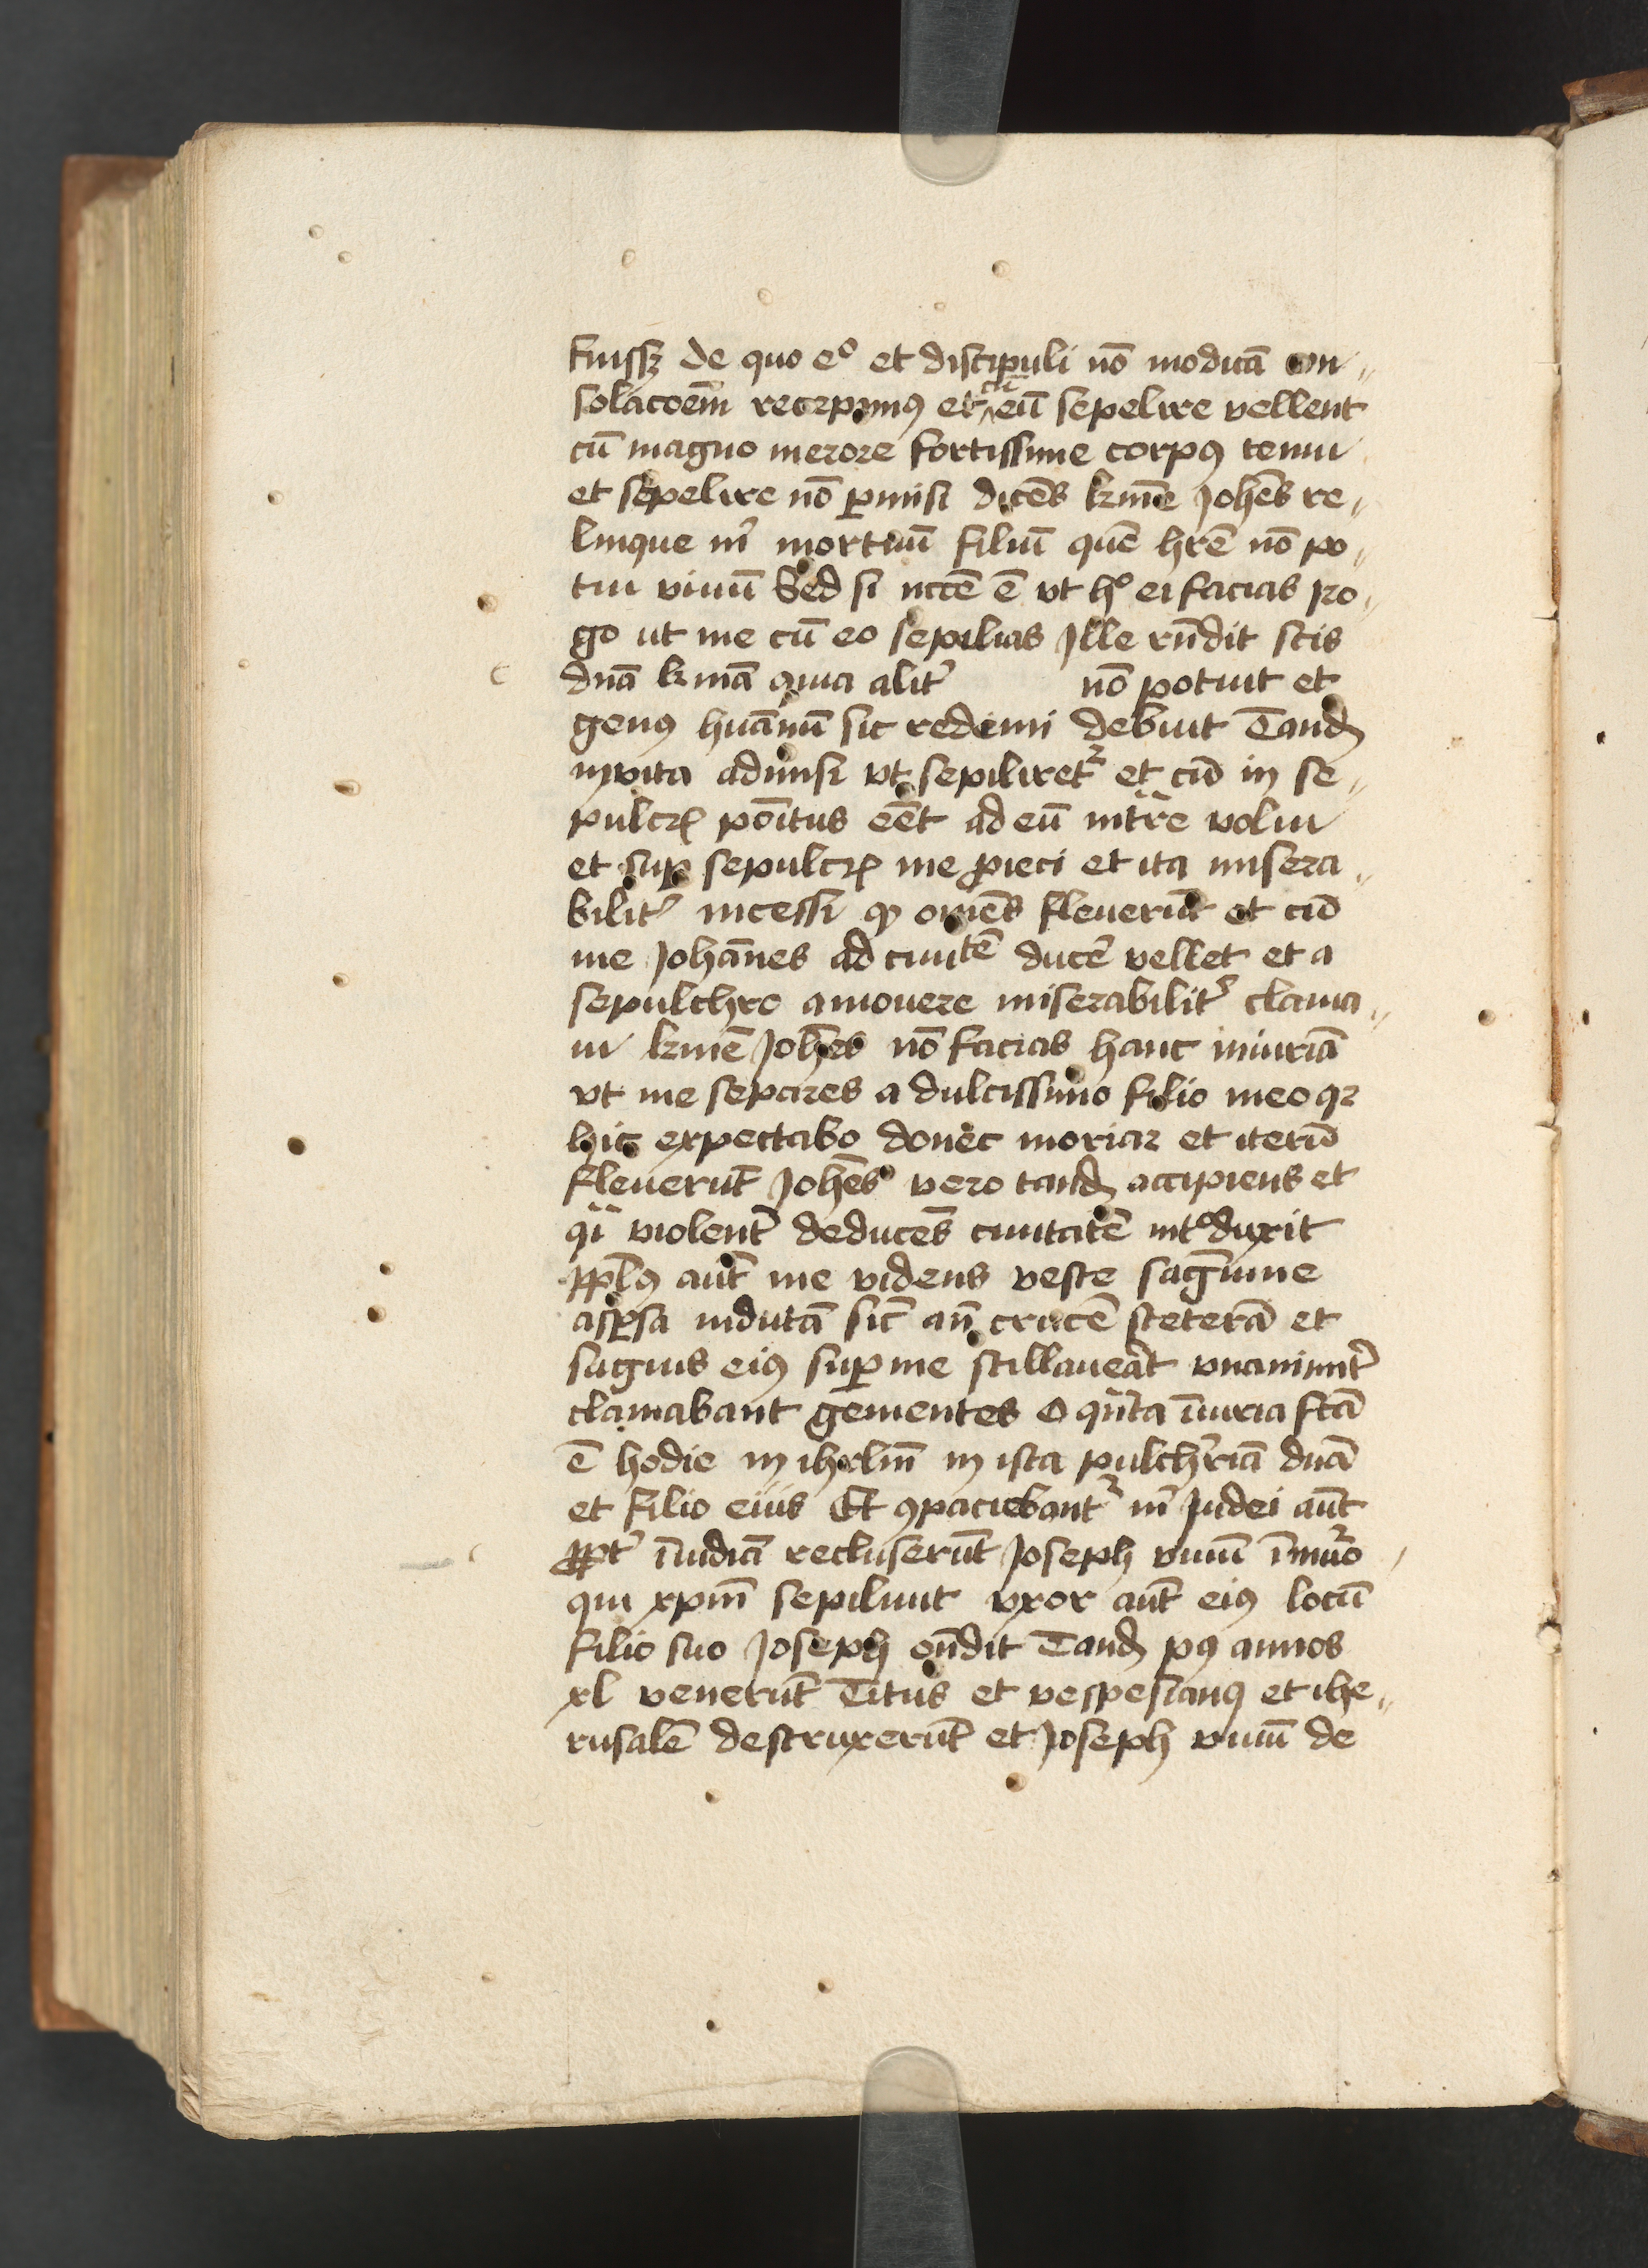 fuissꝫ de quo eº et discipuli nō modicā con
solacoēm recepimꝰ et cū eū sepelire vellent
cū magno merore fortissime corpꝰ tenui
et sepelire nō ꝑmisi dicēs k̄me Johēs re
linque m̄ mortuū filiū quē hr̄e nō po
tui viuū Sed si nccē ē vt hº ei facias ro
go ut me cū eo sepilias Jlle rn̄dit scis
dn̄a k̄ma quia alit̄ nō potuit et
genꝰ huānū sic redimi debuit Tandē
inuita admisi vt sepiliret᷑ et cū in se
pulcrꝫ pōitus eēt ad eū intr̄re volui
et suꝑ sepulcrꝫ me ꝓieci et ita misera
bilit̄ incessi qꝫ om̄es fleuerūt et cū
me Johānes ad ciuitē ducē vellet et a
sepulchro amouere miserabilit̄ clama
ui k̄me Johēs nō facias hanc iniuriā
vt me separes a dulcissimo filio meo qꝛ
hic expectabo donec moriar et iterū
fleuerūt Johēs vero tandē accipiens et
q̄i violent̄ deducēs ciuitatē intºduxit
Ppl̄ꝰ aūt me videns veste sagūine
aspersa indutā sic̄ an̄ crucē steterā et
saguis eiꝰ suꝑ me stillaueāt vnanimit̄
clamabant gementes O qn̄ta īiuria fcā
ē hodie in ihrlm̄ in ista pulch̄riā dn̄ā
et filio eius Et ꝯpaciebant᷑ m̄ Judei aūt
ꝓpt̄ īuidiā recluserūt Joseph viuū ī muro
qui xpm̄ sepiliuit vxor aūt eiꝰ locū
filio suo Joseph on̄dit Tandē pꝰ annos
xl venerūt Titus et vespesianꝰ et ihe
rusalē destruxerūt et Joseph viuū de